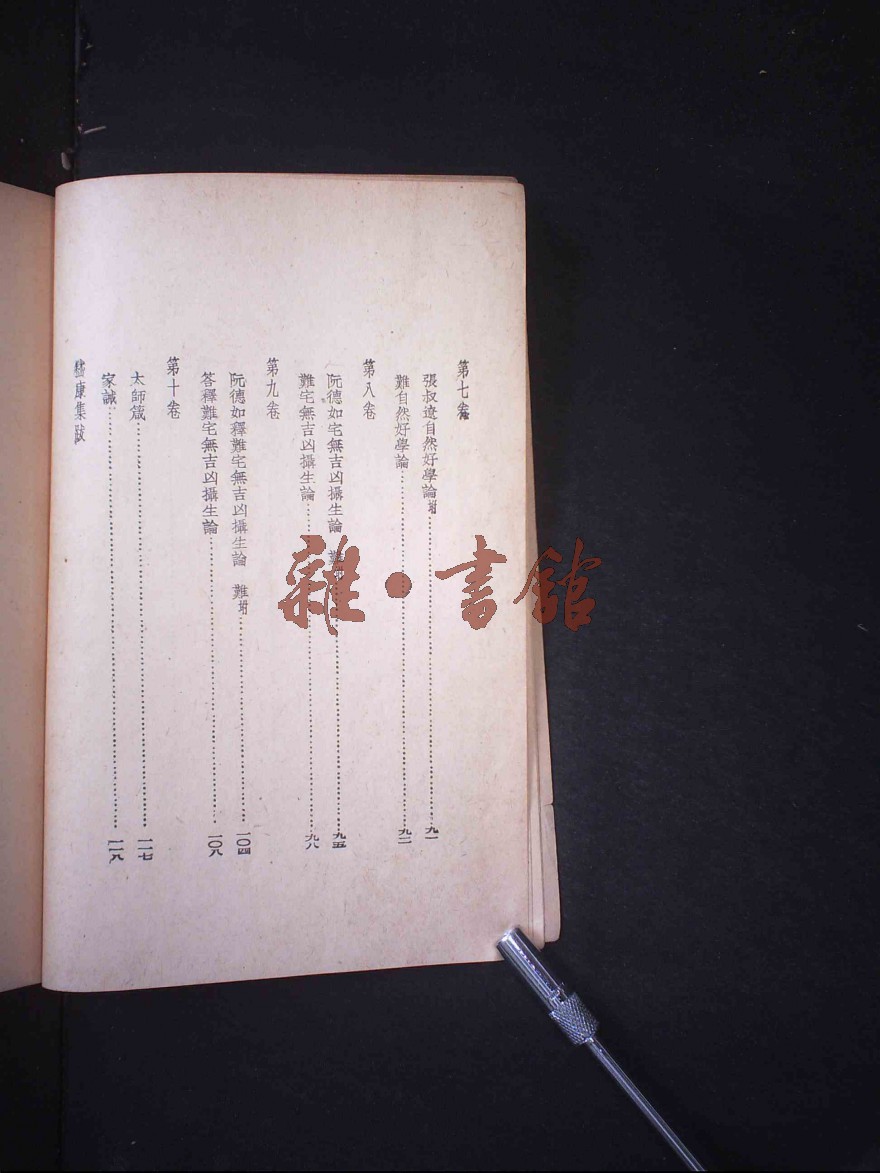 第七卷
張叔遼自然好學論附……九一
難自然好學論……九二
第八卷
阮德如宅無吉凶攝生論 難附……九五
難宅無吉凶攝生論……九八
第九卷
阮德如釋難宅無吉凶攝生論 難附……一〇四
答釋難宅無吉凶攝生論……一〇八
第十卷
太師箴……一一七
家誡……一一八
嵇康集跋
雜·書館